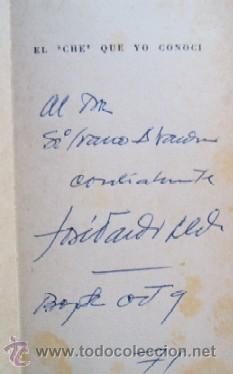 EL "CHE" QUE YO CONOCI
Al Dr
cordialmente
José Pardo
Oct 9
71
www.todocoleccion.net